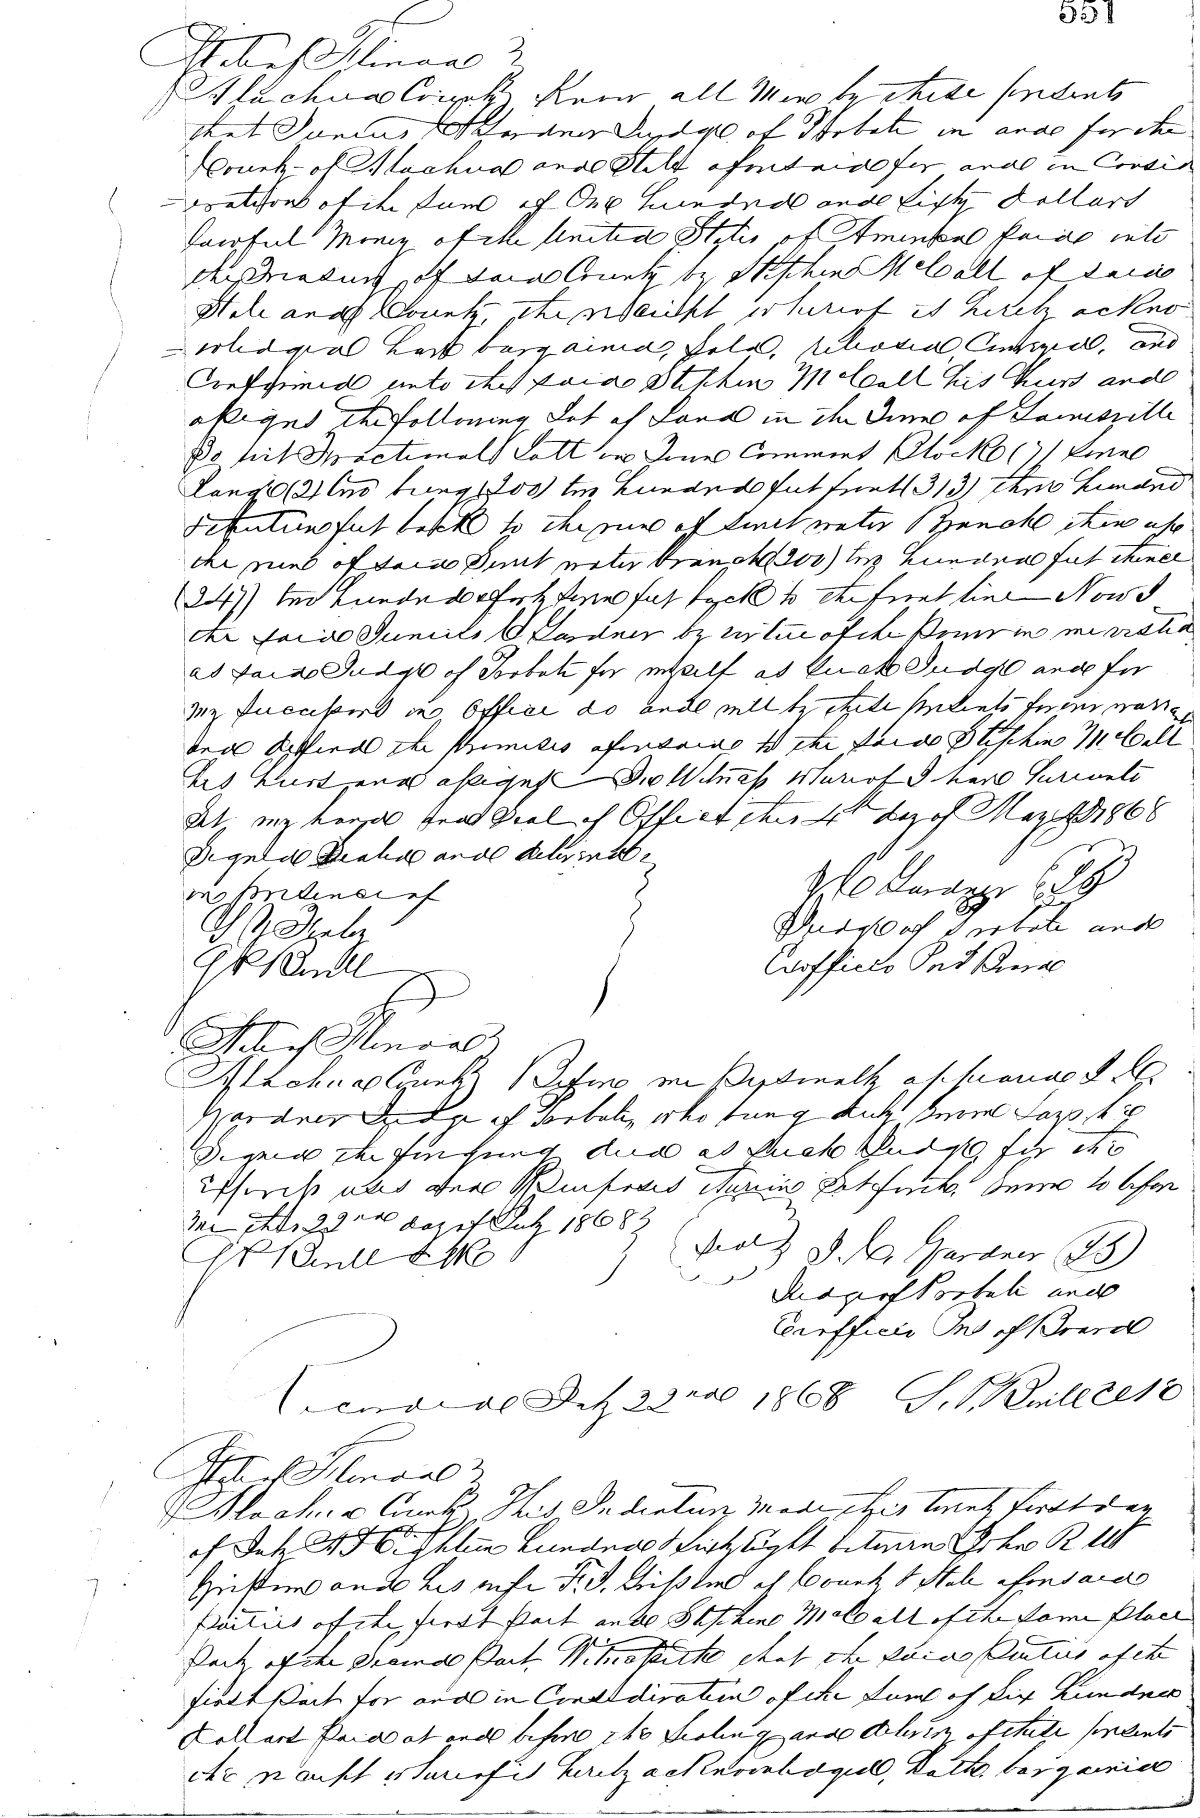 551
State of Florida
Alachua County Know all Men by these presents
that Junius C Gardner Judge of Probate in and for the
County of Alachua and State aforesaid for and in Consid
eration of the sum of One hundred and sixty dollars
lawful Money of the United States of America paid into
the Treasury of said County by Stephen McCall of said
State and County, the receipt whereof is hereby ackno
wledged hath bargained, sold, released, Conveyed, and
Confirmed unto the said Stephen McCall his heirs and
assigns the following Lot of Land in the Town of Gainesville
To wit Fractional Lott on Town Commons Block (7) seven
Range (2) two being (200) two hundred feet front (313) three hundred
thirteen feet back to the run of sweet water Branch then up
the run of said Sweet water branch (200) two hundred feet thence
(247) two hundred & forty seven feet back to the front line Now I
the said Junius C Gardner by virtue of the Power in me vested
as said Judge of Probate for myself as such Judge and for
my successors in Office do and will by these presents forever warra
and defend the premises aforesaid to the said Stephen McCall
his heirs and assigns In Witness whereof I have hereunto
set my hand and Seal of Office this 4th day of May AD 1868
Signed Sealed and delivered
in presence of J C Gardner
Judge of Probate and
Exofficio Pres Board
State of Florida
Alachua County Before me Personally appeared J. C.
Gardner Judge of Probate, who being duly sworn says he
Signed the foregoing deed as such Judge, for the
express uses and Purposes therein set forth. Sworn to before
me this 22nd day of July 1868
(seal) J. C. Gardner
Judge of Probate and
Exofficio Pres of Board
Recorded July 22nd 1868
State of Florida
Alachua County This Indenture made this twenty first day
of July AD Eighteen hundred & sixty Eight between John R W
and his wife F. J. of County & State aforesaid
parties of the first part and Stephen McCall of the same place
party of the Second part, Witnesseth that the said Parties of the
first part for and in Consideration of the sum of Six hundred
dollars paid at and before the Sealing and delivery of these presents
the receipt whereof is hereby acknowledged, Hath bargained